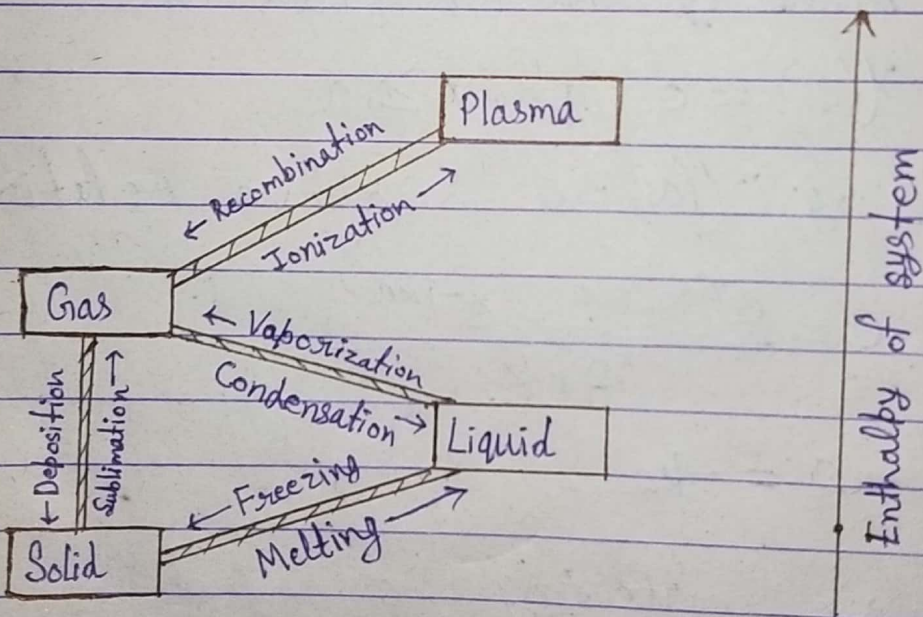 Plasma
← Recombination
Ionization →
Gas
← Vaporization
Condensation →
Liquid
← Deposition
Sublimation →
← Freezing
Melting →
Solid
Enthalpy of system